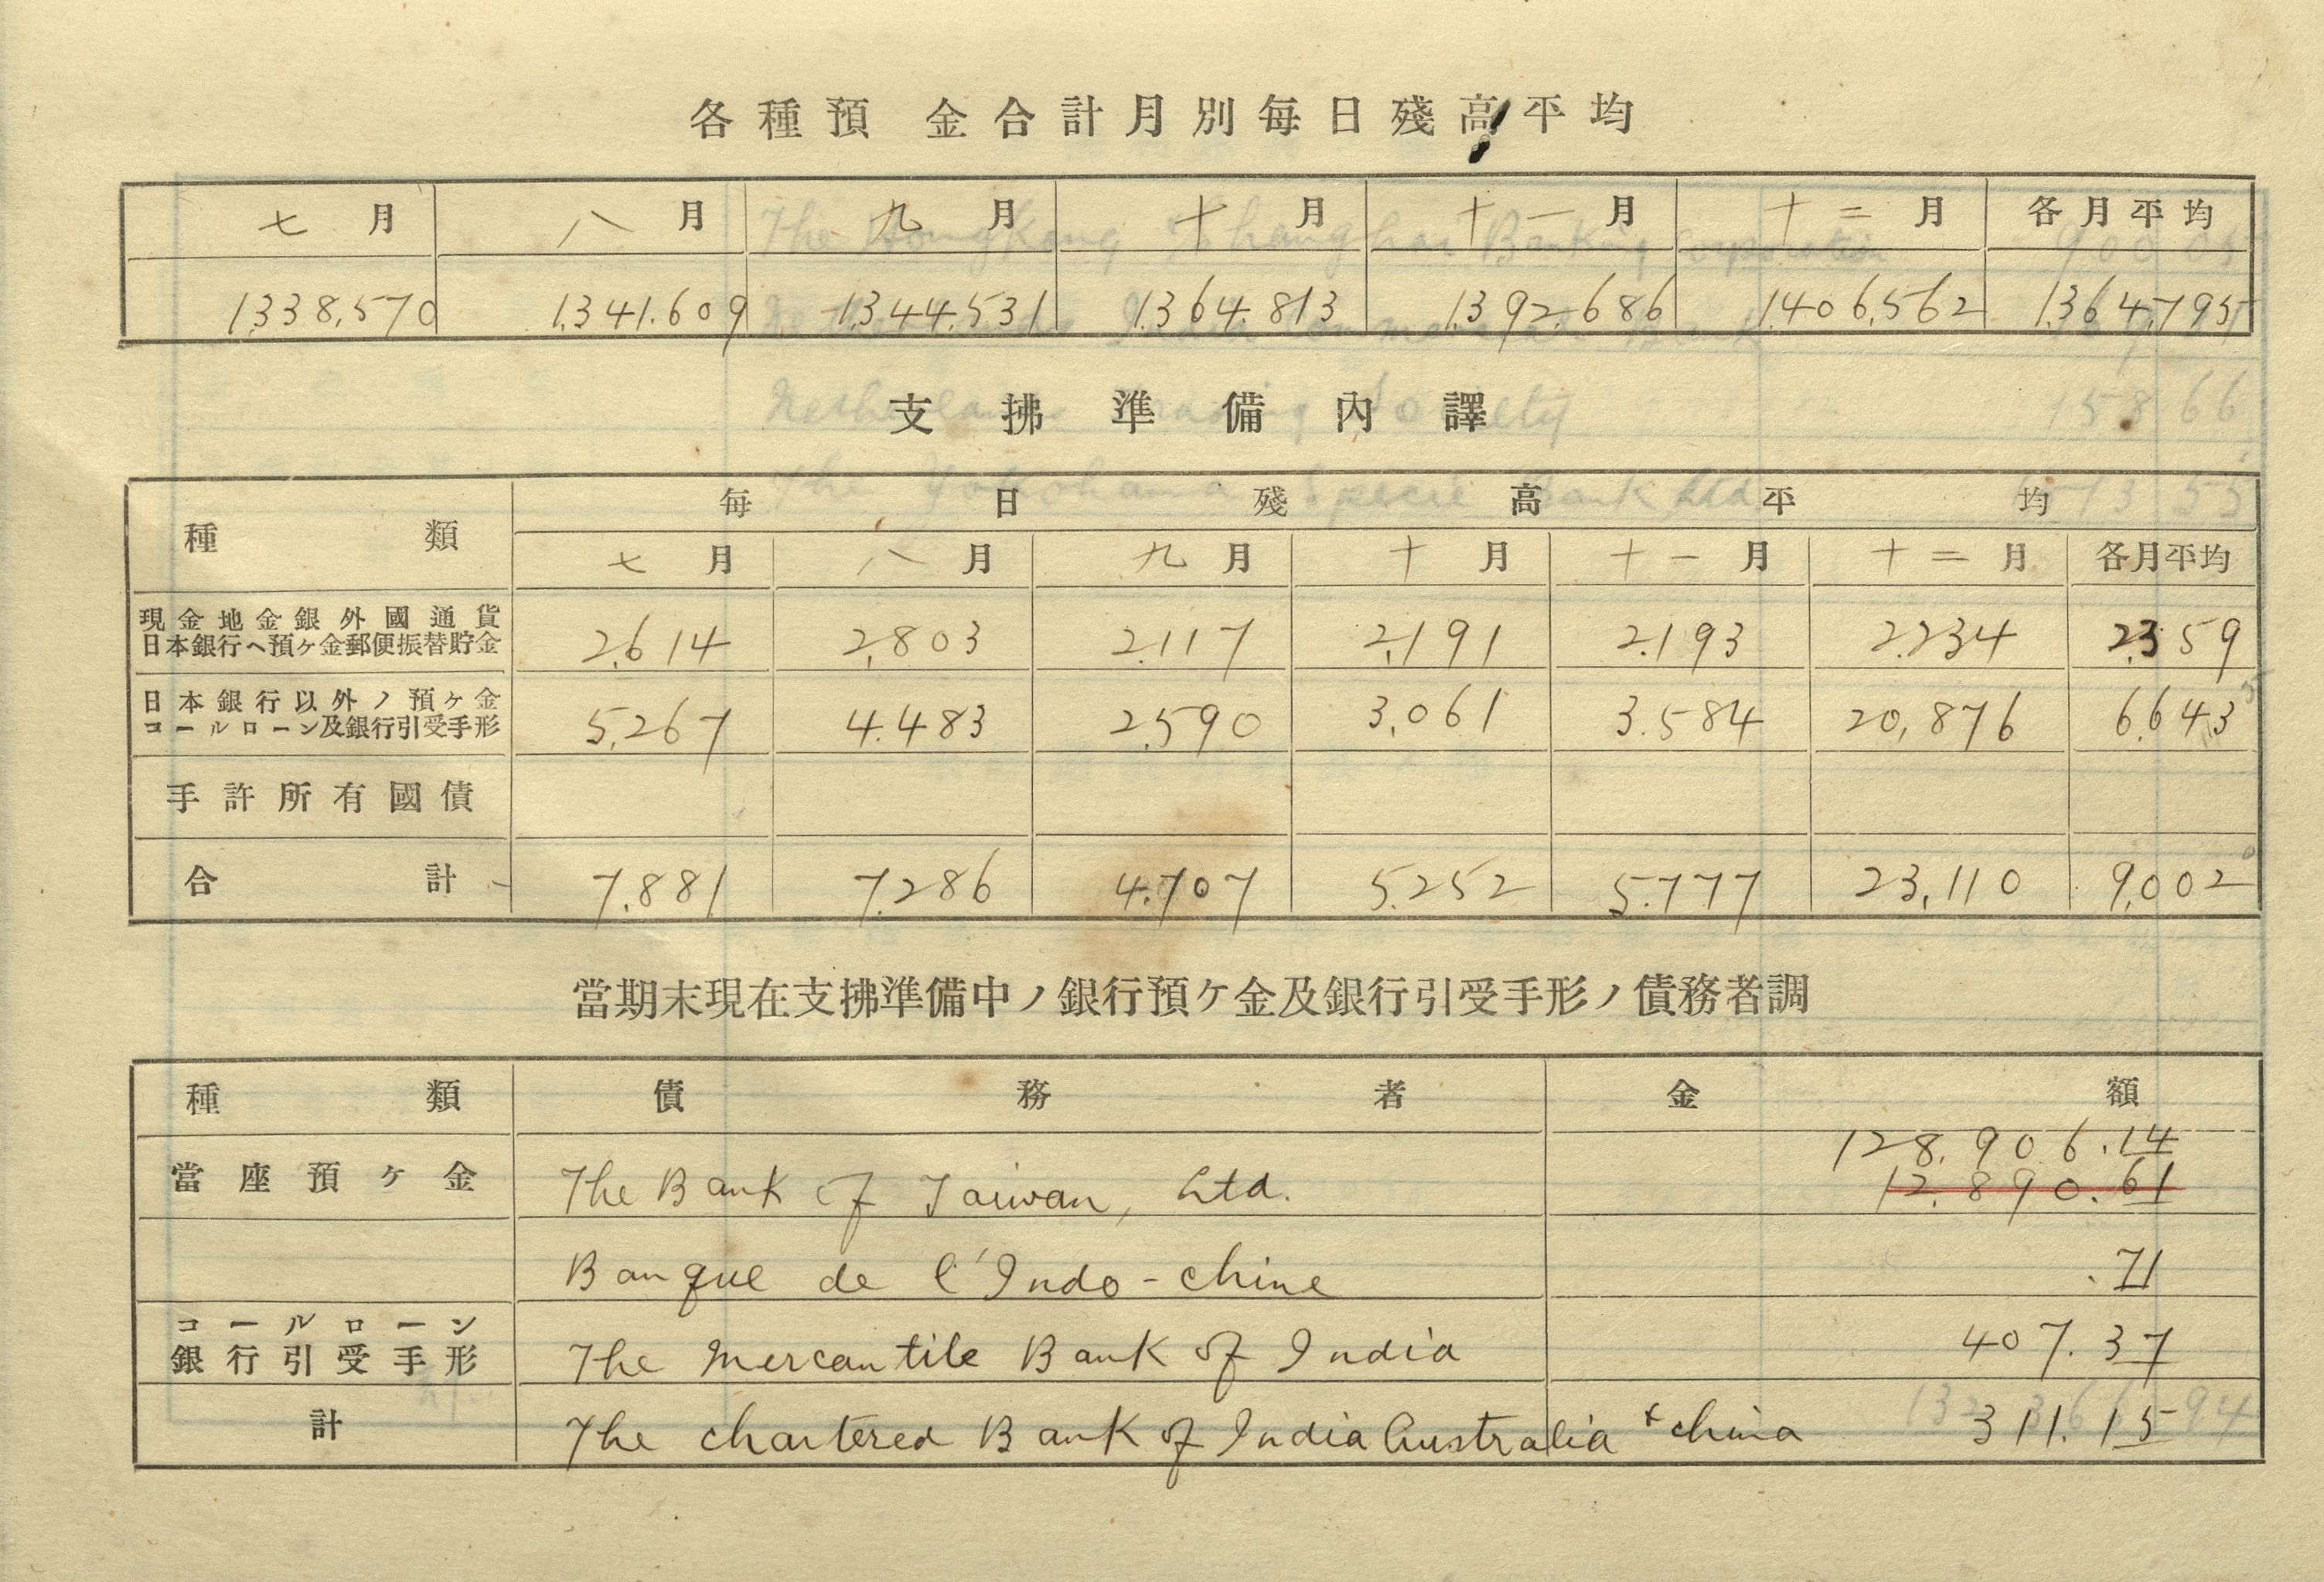 各種預金合計月別毎日殘高平均
七月 八月 九月 十月 十一月 十二月 各月平均
1,338,570 1,341,609 1,344,531 1,364,813 1,392,686 1,406,562 1,364,795
支拂準備內譯
種類 毎日殘高平均
七月 八月 九月 十月 十一月 十二月 各月平均
現金地金銀外國通貨
日本銀行ヘ預ヶ金郵便振替貯金 2,614 2,803 2,117 2,191 2,193 2,234 2,359
日本銀行以外ノ預ヶ金
コールローン及銀行引受手形 5,267 4,483 2,590 3,061 3,584 20,876 6,643
手許所有國債
合計 7,881 7,286 4,707 5,252 5,777 23,110 9,002
當期末現在支拂準備中ノ銀行預ケ金及銀行引受手形ノ債務者調
種類 債務者 金額
128,906.14
當座預ヶ金 The Bank of Taiwan, Ltd. 12,890.61
Banque de l'Indo-chine .71
コールローン
銀行引受手形 The Mercantile Bank of India 407.37
計 The chartered Bank of India Australia & china 311.15